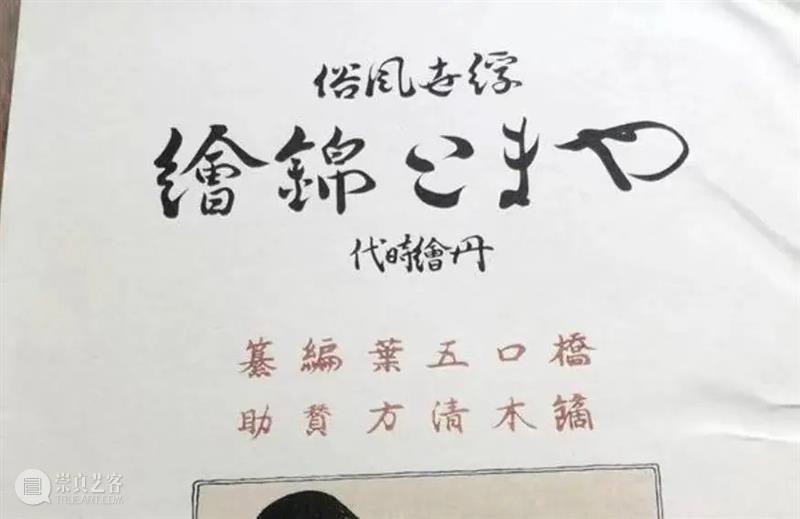 浮世風俗
やまと錦繪
丹繪時代
橋口五葉編纂
鏑木清方賛助
崇真艺客
TRUEART.COM